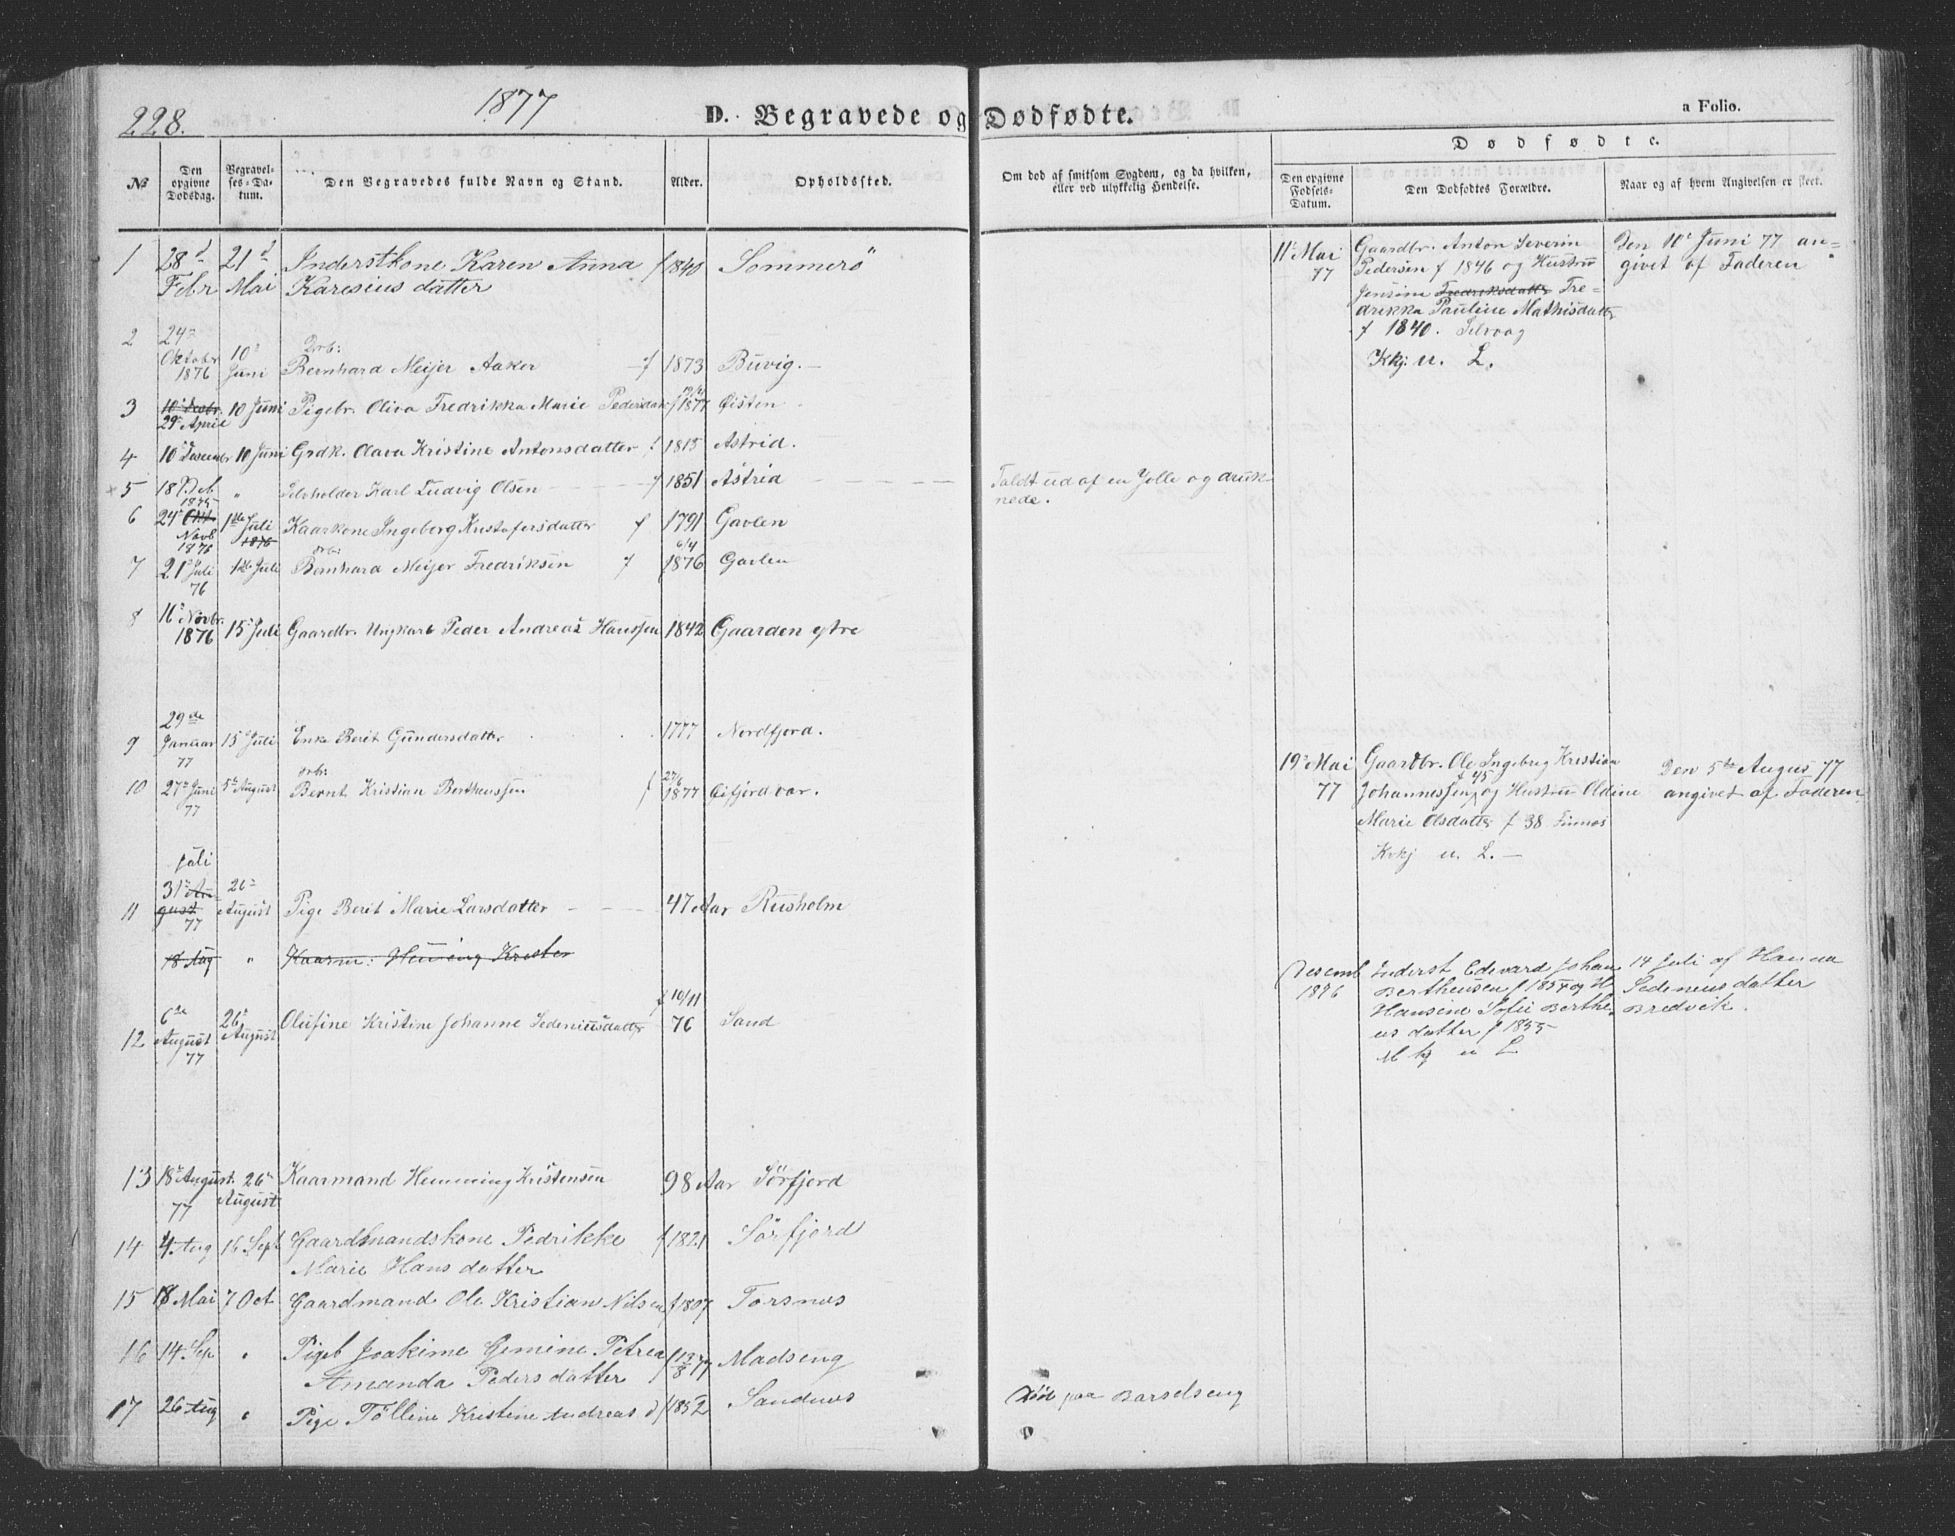 228.
1877
D. Begravede og Dødfødte.
a Folio.
Nº
Den opgivne Dødsdag.
Begravelses-Datum.
Den Begravedes fulde Navn og Stand.
Alder.
Opholdssted.
Om død af smitsom Sygdom, og da hvilken, eller ved ulykkelig Hendelse.
Dødfødte.
Den opgivne Fødsels-Datum.
Den Dødfødtes Forældre.
Naar og af hvem Angivelsen er skeet.
1 28d 21d Inderstkone Karen Anna f 1840 Sommerö
Febr Mai Karesius datter
11te Mai 77 Gaardbr. Anton Severin
Pedersen f 1846 og Hustru
Jensine Fredriksdatter Fre-
drikka Pauline Mathisdatter
f 1840. Selvaag
Kkj. u. L.
Den 10de Juni 77 an-
givet af Faderen
2 24de Oktobr 1876 10de Juni Drb:
Bernhard Meijer Aaker f 1873 Buvig.
3 29de April 10 Juni Pigebr. Oliva Fredrikka Marie Pedersdatr f 1877 Øisten
4 10de Desembr 10 Juni Grdk. Olava Kristine Antonsdatter f 1815 Astrid.
5 18 Deb 1875 " Selvholder Karl Ludvig Olsen f 1851 Astrid
Faldt ud af en Jolle og druk-
nede.
6 24de Okt. Novb 1876 1ste Juli 1876 Kaarkone Ingeberg Kristofersdatter f 1791 Gavlen
7 21de Juli 76 1ste Juli drb:
Bernhard Meijer Fredriksen f 6/4 1876 Gavlen
8 16de Novbr. 1876 15de Juli Gaardbr. Ungkarl Peder Andreas Hanssen 1842 Gaarden ytre
9 29de Januar 77 15de Juli Enke Berit Gundersdatter 1777 Nordfjord.
10 27de Juni 77 5te August drb:
Bernt Kristian Bertheussen f 27/6 1877 Oifjordvar.
19de Mai 77 Gaardbr. Ole Ingebrig Kristian
Johannessen f 45 og Hustru Oldine
Marie Olsdatter f 38 Finnes
Kvkj u. L.
Den 5te Augus 77
angivet af Faderen
11 Juli 31te August 77 26de August Pige Berit Marie Larsdatter 47 Aar Rusholm
18 Aug " Kaarm: Hemming Kristen
12 6te August 77 26de August Olufine Kristine Johanne Sedeniusdatter f 10/11 76 Sand
Desemb 1876 Inderst Edevard Johan
Bertheusen f 1854 og H
Hansine Sofie Berthe-
us datter f 1855
M kj u L
14 Juli af Hanna
Sedeneus datter
Bredvik.
13 18de August 77 26de August Kaarmand Hemming Kristensen 98 Aar Sörfjord
14 4. Aug 16 Sept Gaardmandskone Pedrikke f 1821 Sörfjord
Marie Hans datter
15 18 Mai 7 Oct Gaardmand Ole Kristian Nilsen f 1807 Torsnes
16 14. Sep " Pigeb Joakime Gemine Petrea f 77 Madseng
Amanda Pedersdatter
17 26 Aug " Pige Tölline Kristine Andreas d f 1852 Sandnes
Död paa Barselseng